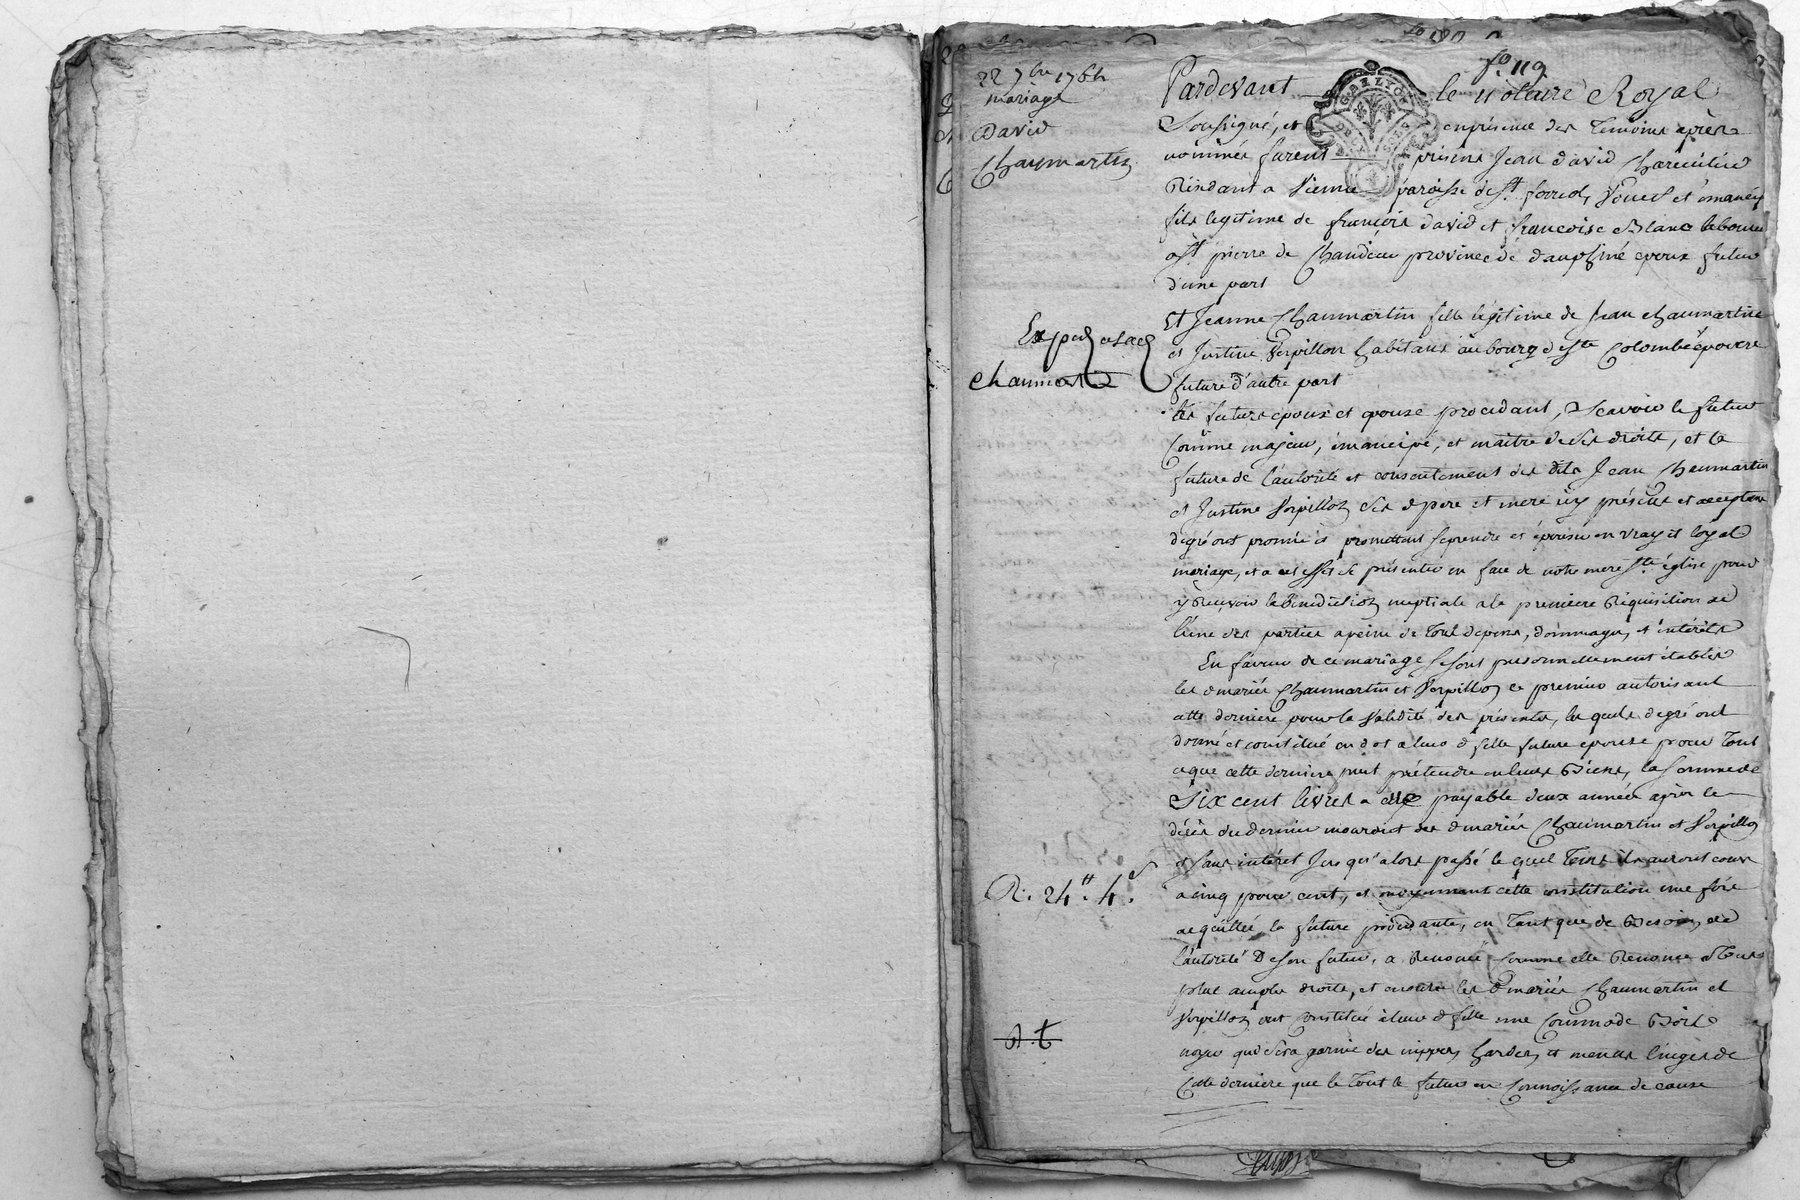 fo 119
22 7bre 1764
mariage
David
Chaumartin
Exped
Chaumartin
R. 24tt. 4s.
Pardevant le notaire Royal
Soussigné, et en présence des temoins après
nommés furent présens Jean David Charcutier
Résidant a Vienne paroisse de St. ferreol, et émancipé
fils legitime de françois David et françoise Blanc
a St pierre de Chandieu province de dauphiné epoux futur
d'une part
Et Jeanne Chaumartin fille légitime de Jean chaumartin
et Justine Verpillon habitans au bourg de Ste Colombe épouse
future d'autre part
les futurs epoux et epouse procedant, Scavoir le futur
Comme majeur, émancipé, et maitre de ses droits, et la
future de l'autorité et consentement des dits Jean Chaumartin
et Justine Verpillon ses d pere et mere icy présens et acceptans
de gré ont promis et promettent se prendre et épouser en vray et loyal
mariage, et a cet effet se présenter en face de notre mere Ste église pour
y Recevoir la Bénediction nuptiale a la premiere Réquisition de
l'une des parties a peine de tout depens, dommages, et intérêts
En faveur de ce mariage se sont personnellement établis
les d mariés Chaumartin et Verpillon ce premier autorisant
cette derniere pour la validité des présentes, les quels de gré ont
donné et constitué en dot a leur d fille future epouse pour tout
ce que cette derniere peut prétendre en leurs Biens, la somme de
Six cent livres a elle payable deux années après le
décès du dernier mourant des d mariés Chaumartin et Verpillon
et sans intérêt Jusqu'alors passé le quel tems ils auront cours
a cinq pour cent, et moyennant cette constitution une fois
acquittée, la future procedante, en tant que de Besoin, de
l'autorité De son futur, a Renoncé comme elle Renonce a tous
plus amples droits, et encore les d mariés Chaumartin et
Verpillon ont constitué a leur d fille une Commode Bois
noyer qui sera garnie des nippes, hardes, et menus linges de
Cette derniere que le tout le futur en Connoissance de cause